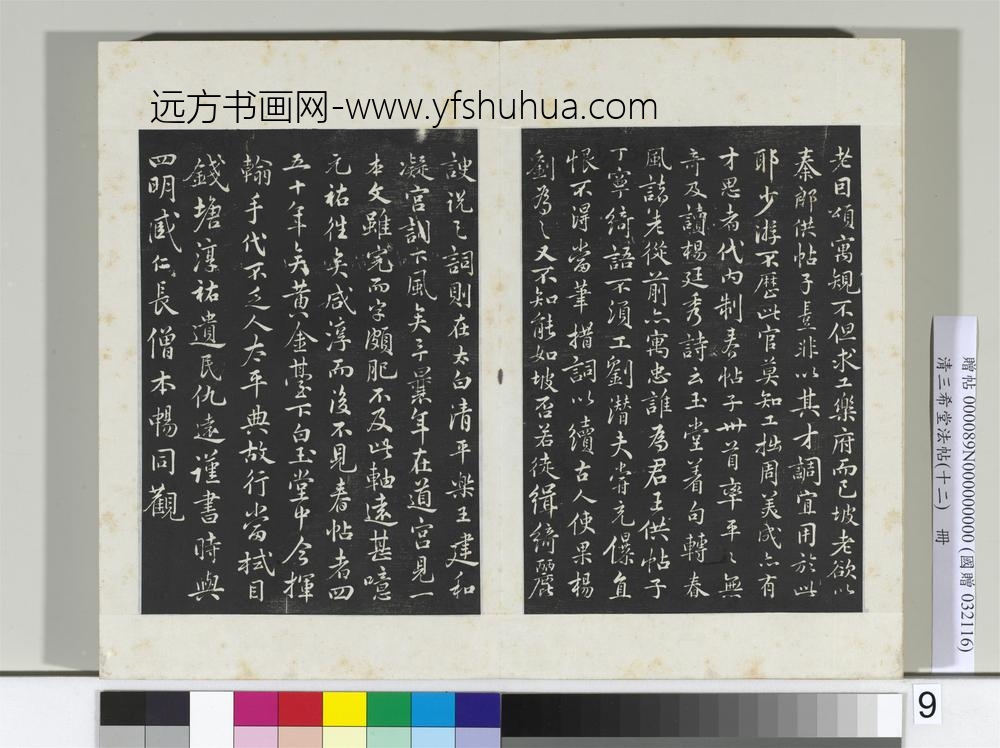 远方书画网-www.yfshuhua.com
老因頌寓規不但求工樂府而已坡老欲以
秦郎供帖子豈非以其才調宜用於此
耶少游不歷此官莫知工拙周美成亦有
才思者代内制春帖子卅首率平々無
奇及讀楊廷秀詩云玉堂着句轉春
風諸老從前亦寓忠誰為君王供帖子
丁寧綺語不須工劉潛夫嘗充儤直
恨不得當筆措詞以續古人使果楊
劉為之又不知能如坡否若徒緝綺麗
諛説之詞則在太白清平樂王建和
凝宮詞下風矣予曩年在道宮見一
本文雖完而字頗肥不及此軸遠甚噫
元祐徃矣咸淳而後不見春帖者四
五十年矣黄金臺下白玉堂中今揮
翰手代不乏人太平典故行當拭目
錢塘淳祐遺民仇遠謹書時與
四明臧仁長僧本暢同觀
贈帖 000089N000000000 (國贈 032116)
清三希堂法帖(十二) 冊
9